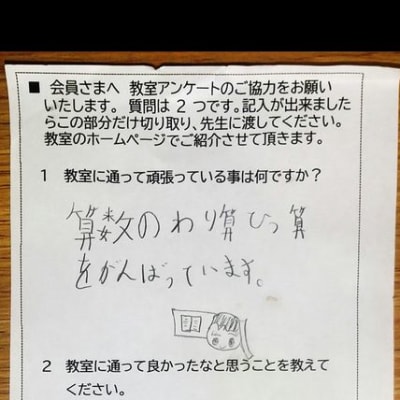 ■ 会員さまへ 教室アンケートのご協力をお願い
いたします。 質問は 2 つです。記入が出来ました
らこの部分だけ切り取り、先生に渡してください。
教室のホームページでご紹介させて頂きます。
1 教室に通って頑張っている事は何ですか？
算数のわり算ひっ算
をがんばっています。
2 教室に通って良かったなと思うことを教えて
ください。